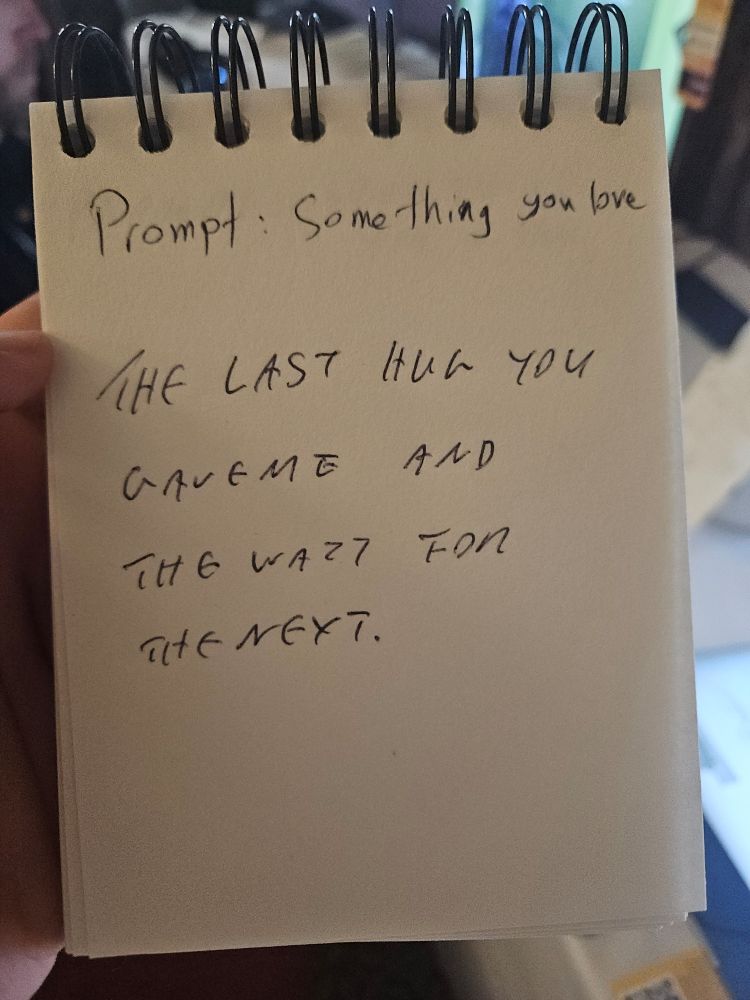 Prompt: Something you love
THE LAST HUG YOU
GAVE ME AND
THE WAIT FOR
THE NEXT.